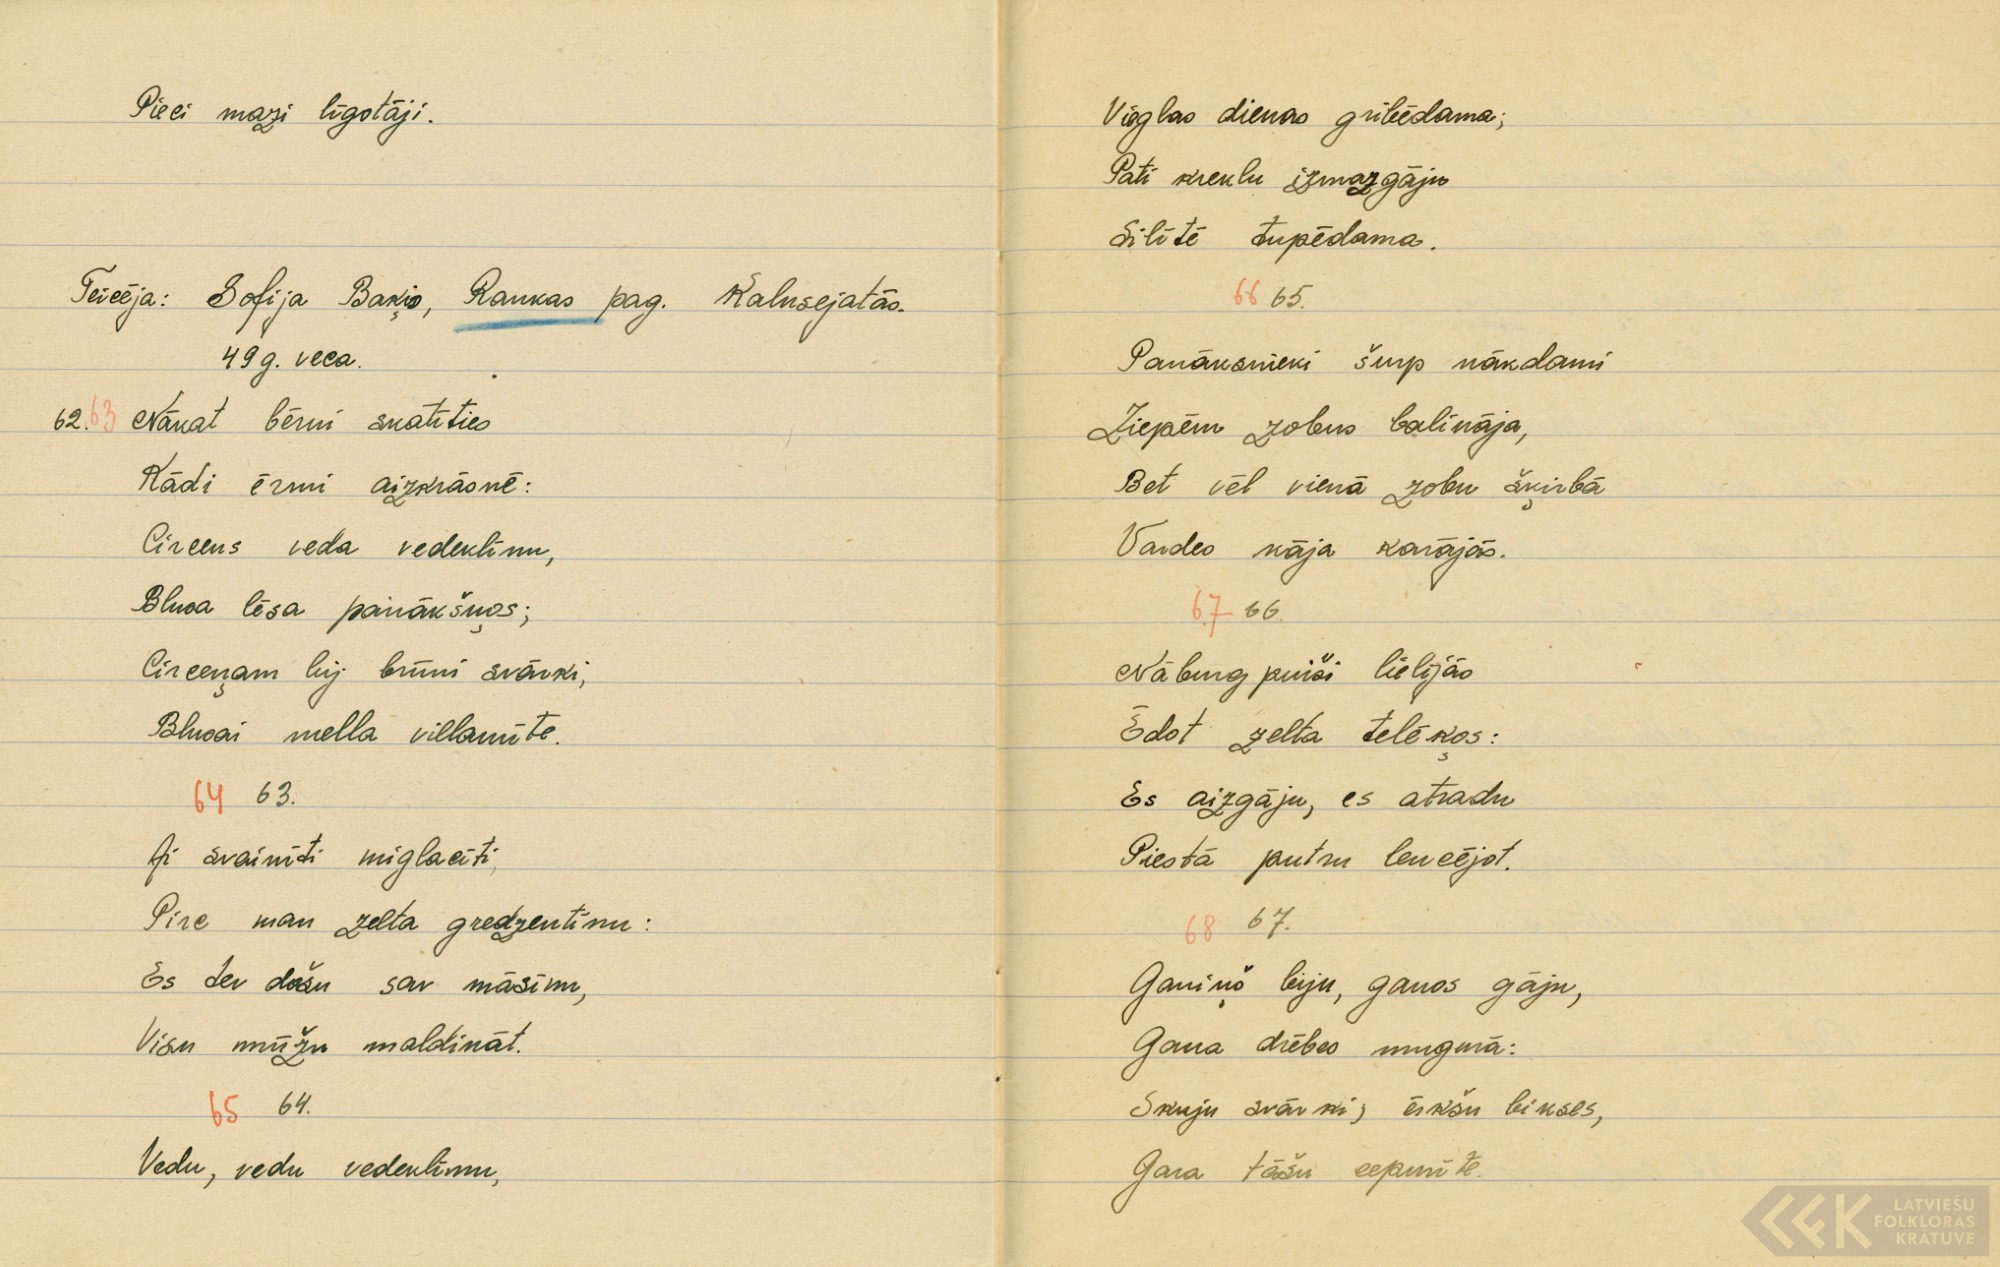 Pieci mazi līgotāji.
Teicēja: Sofija Baķis, Raukas pag. Kalnsejatās.
49 g. veca.
62. 63 Nākat bērni skatīties
Kādi ērmi aizkrāsnē:
Circens veda vedeklīnu,
Blusa lēsa panākšņos;
Circeņam bij brūni svārki,
Blusai mella villanīte.
64 63.
Ai svainīti miglacīti,
Pirc man zelta gredzentīnu:
Es tev došu sav māsīnu,
Visu mūžu maldināt.
65 64.
Vedu, vedu vedeklīnu,
Vieglas dienas gribēdama;
Pati kreklu izmazgāju
Silītē tupēdama.
66 65.
Panāksnieki šurp nākdami
Ziepēm zobus balināja,
Bet vēl vienā zobu šķirbā
Vardes kāja karājās.
67 66.
Nāburg puiši lielījās
Ēdot zelta telēķos:
Es aizgāju, es atradu
Piestā putru lencējot.
68 67.
Ganiņš biju, ganos gāju,
Gana drēbes mugurā:
Skuju svārki, ērkšu bikses,
Gara tāšu cepurīte.
LATVIEŠU
FOLKLORAS
KRATUVE